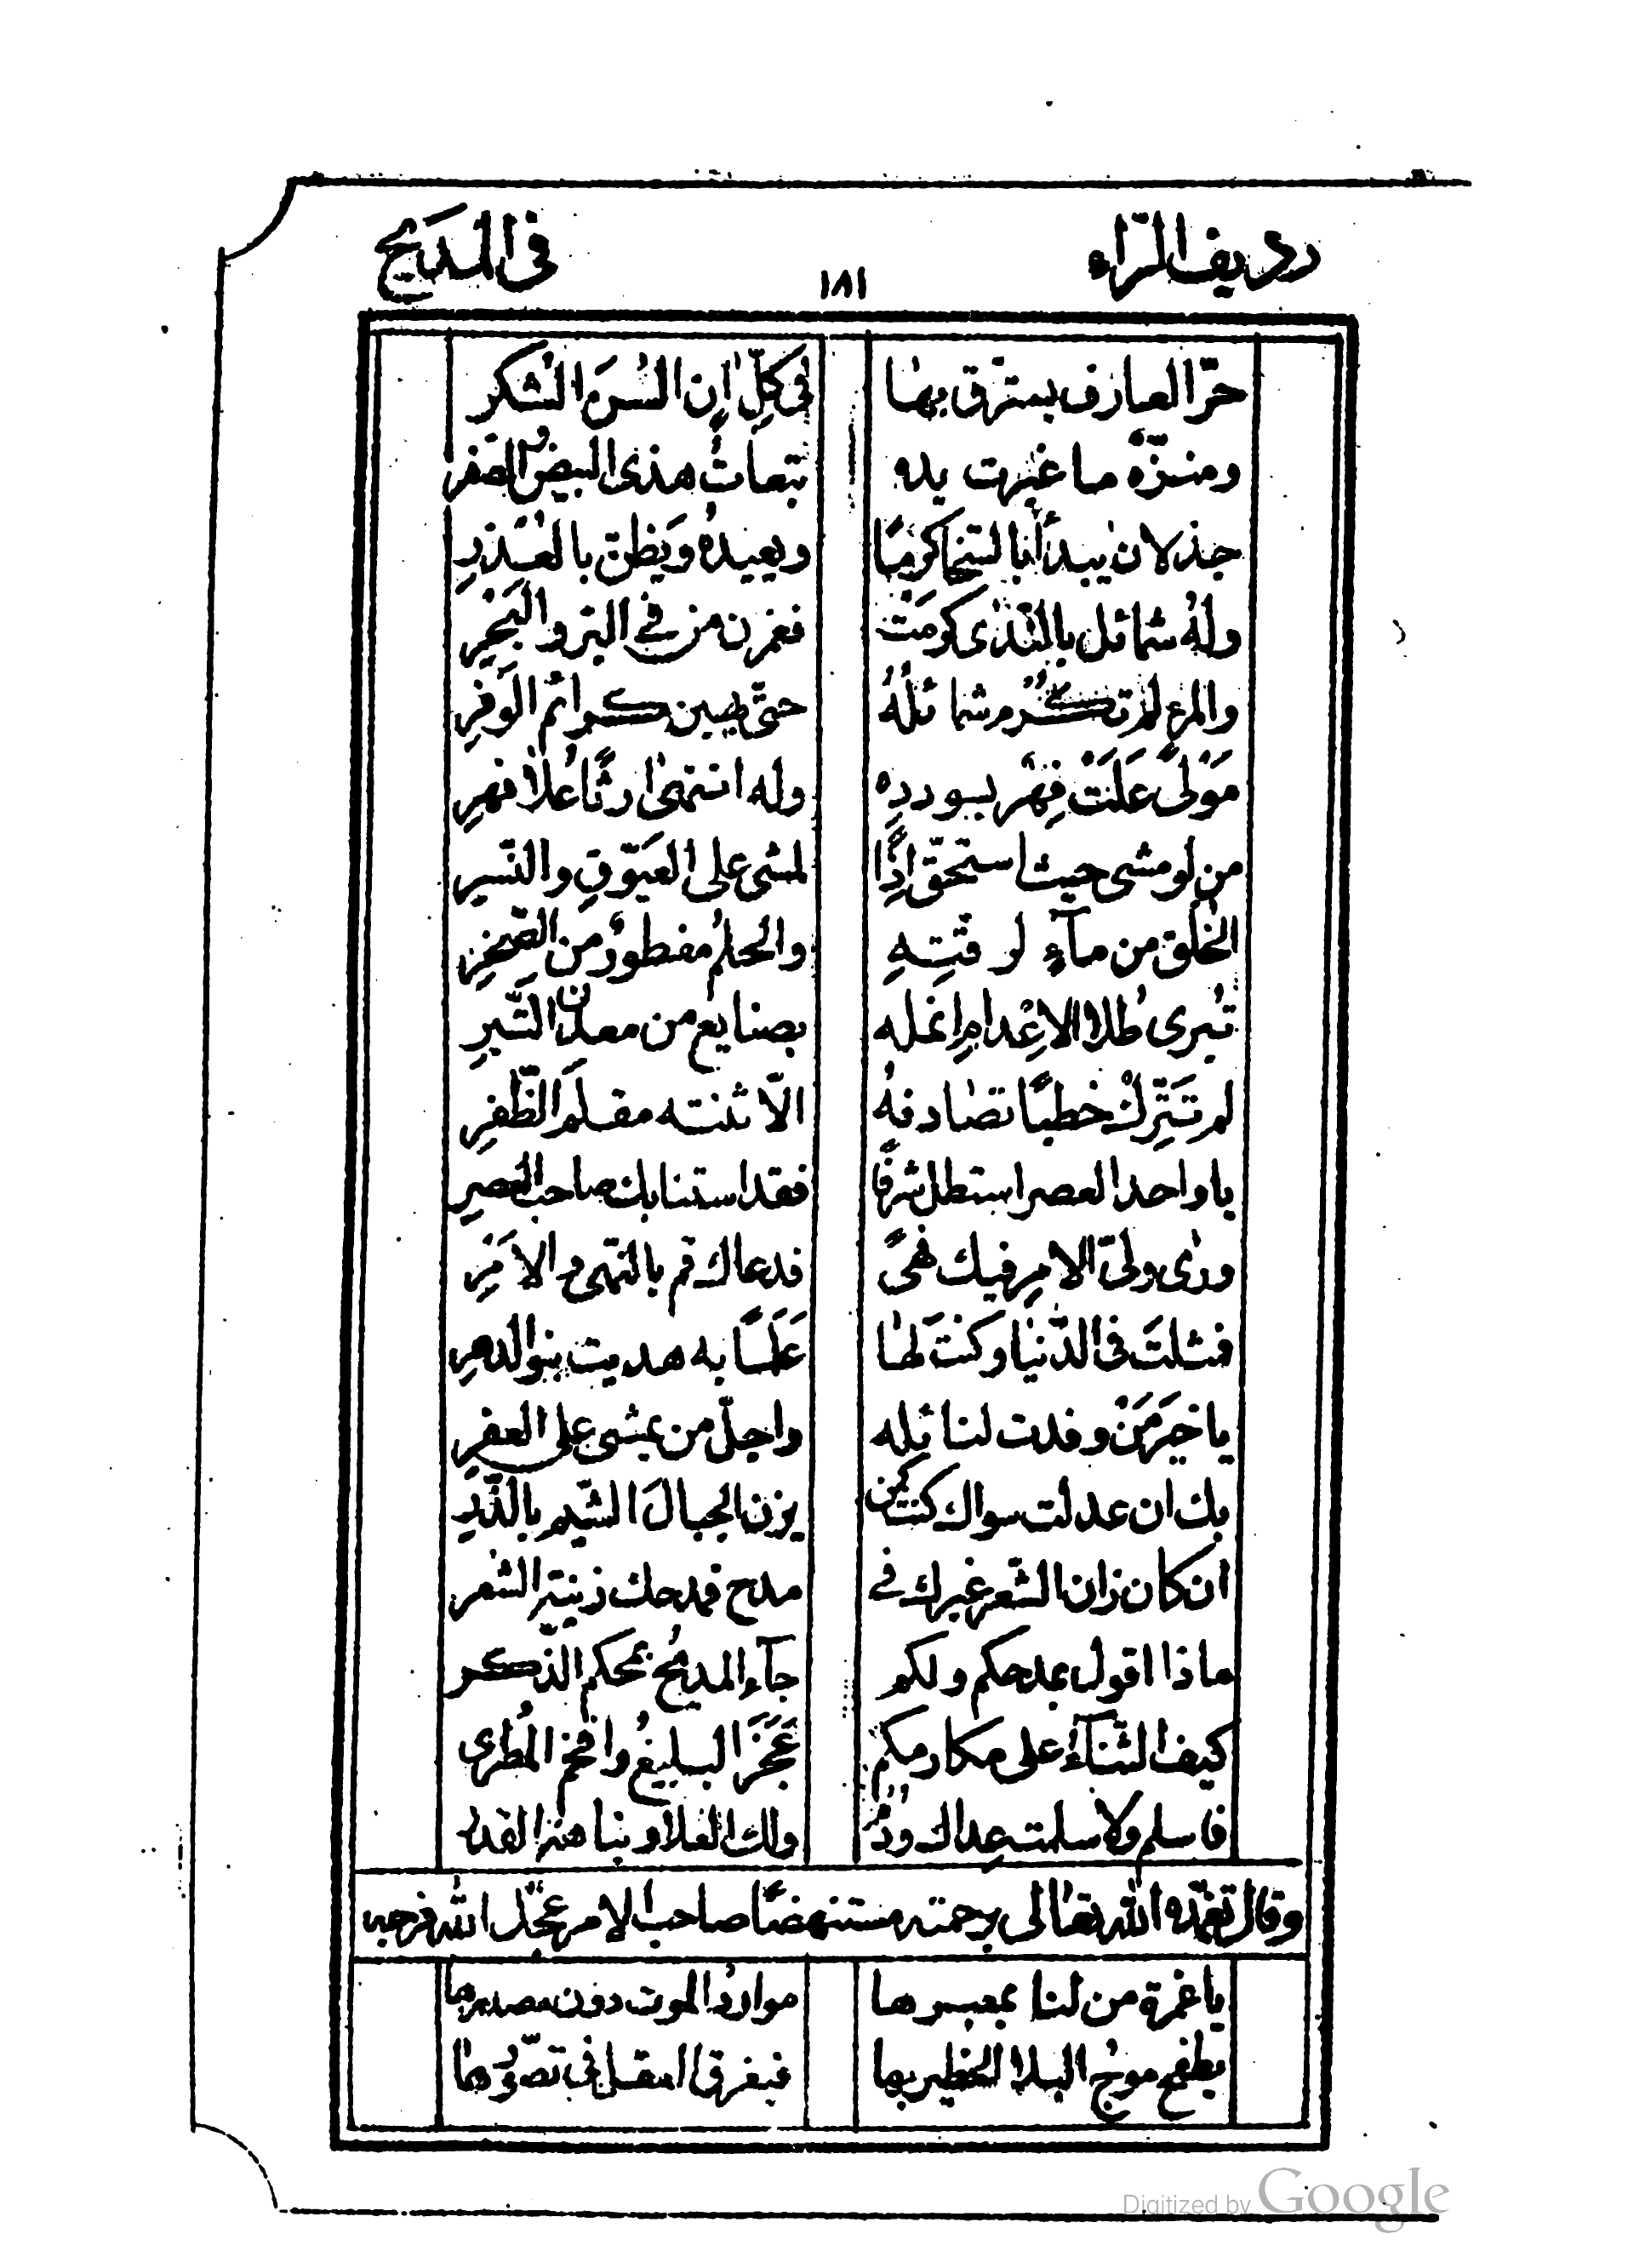 رديف الرّاء ١٨١ في المديح
حرّ العارف يسترقّ بها في كلّ ان السن الشكر
ومنزّه ما غيرت يده تبعات هذى البيض الصفر
جذلان يبدأ بالسّخا كرمًا ويعيده ويظنّ بالعذر
وله شمائل بالنّدى كرمت فغمرن من في البرّ والبحر
والمرء لم تكرم شمائله حتّى يهين كرائم الوفر
مولىً علت فهر بسودده وله انتهى ارثًا علا فهر
من لو مشى حيث استحقّ اذًا لمشى على العيّوق والنّسر
الخلق من ماء لرقّته والحلم مفطور من الصّخر
تبرى طلا الاعدام انمله بصنايع من معدن التّبر
لم تترك خطبًا تصادفه الّا ثنته مقلّم الظّفر
يا واحد العصر استطل شرفًا فقد استنابك صاحب العصر
ورأى وليّ الامر فيك نهىً فدعاك قم بالنّهي والامر
فمثلت في الدّنيا وكنت لها علمًا به هديت بنو الدهر
يا خير من وفدت لنائله واجلّ من يمشى على العفر
بك ان عدلت سواك كنت كمن يزن الجبال الشّم بالذّر
ان كان زان الشّعر غيرك في مدح فمدحك زينة الشعر
ماذا اقول بمدحكم ولكم جاء المديح بمحكم الذّكر
كيف الثّناء على مكارمكم عجز البليغ وافحم المطرى
فاسلم ولا سلمت عداك ودم ولك العلا وبنا هنا القدر
وقال تغمّده الله تعالى برحمته مستنهضًا صاحب الامر عجّل الله فرجه
يا غمرة من لنا بمعبرها موارد الموت دون مصدرها
يطفح موج البلا الخطير بها فيغرق العقل في تصوّرها
Digitized by Google